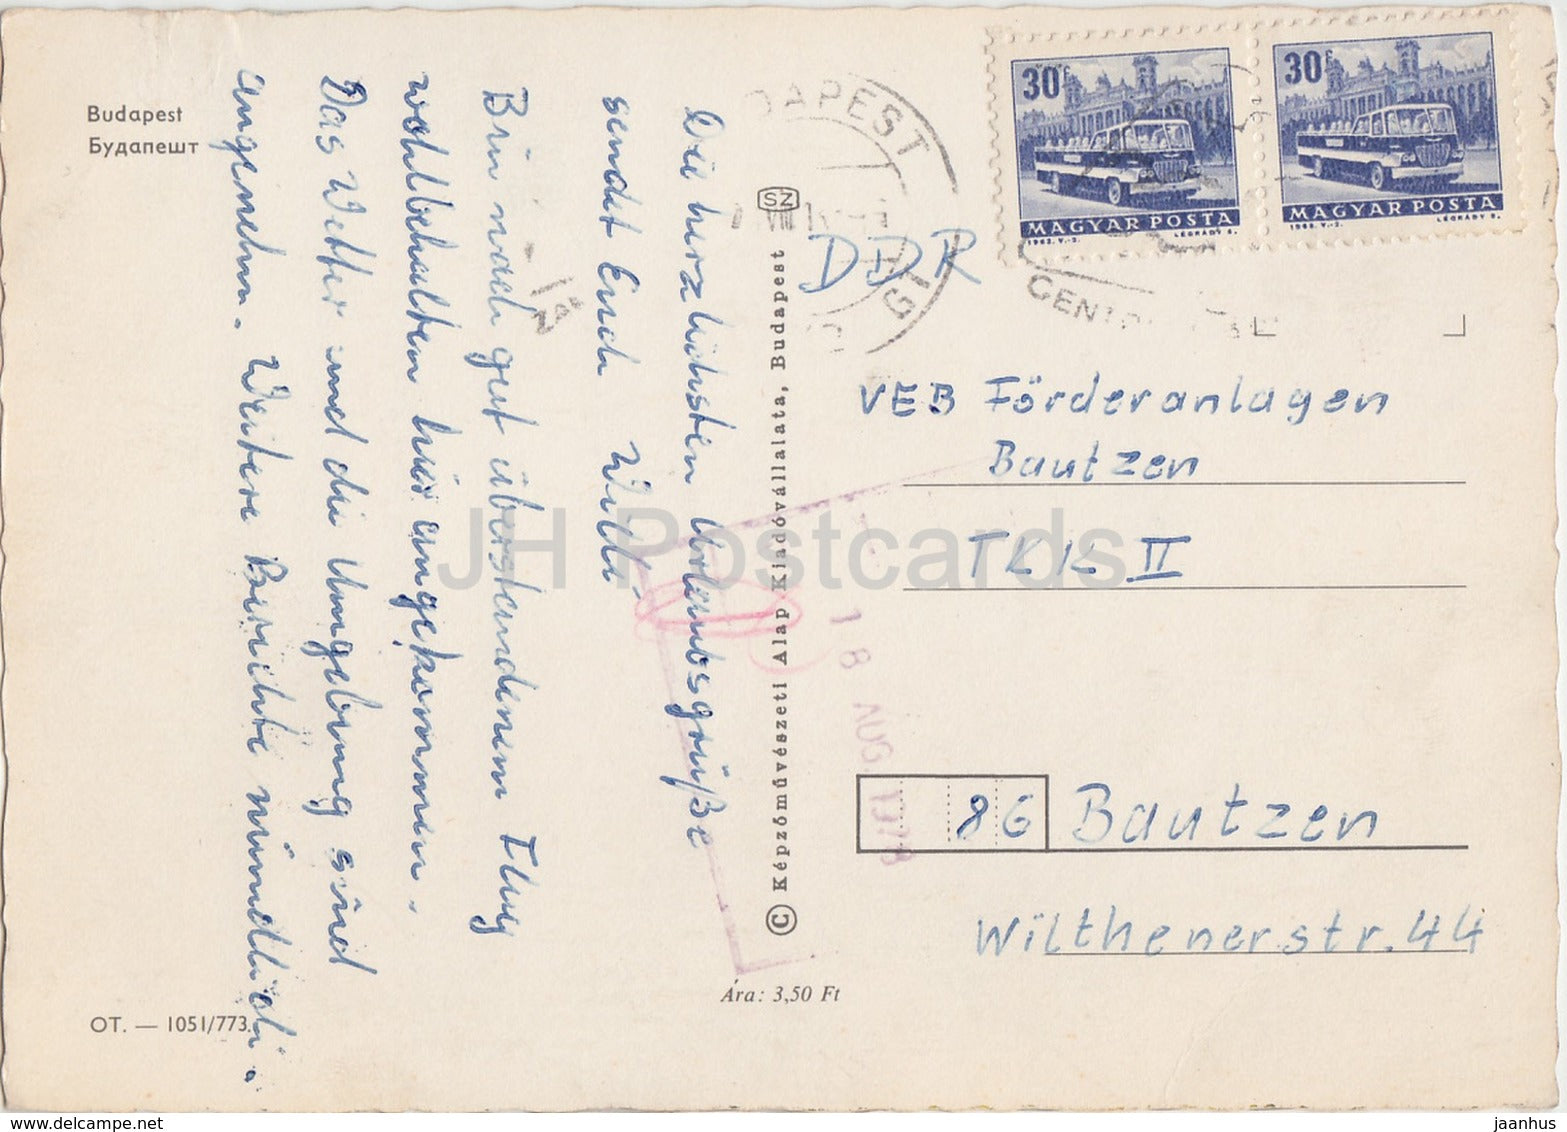 Budapest
Будапешт
Die herzlichsten Urlaubsgrüße
sendet Euch Willi.
Bin nach gut überstandenem Flug
wohlbehalten hier angekommen.
Das Wetter und die Umgebung sind
angenehm. Weitere Berichte mündlich.
OT. — 1051/773.
SZ
© Képzőművészeti Alap Kiadóvállalata, Budapest
Ára: 3,50 Ft
30f
MAGYAR POSTA
1963. V-2. LÉGRÁDY S.
30f
MAGYAR POSTA
1963. V-2. LÉGRÁDY S.
DAPEST
VIII
18 AUG. 1978
DDR
VEB Förderanlagen
Bautzen
TKK II
86 Bautzen
Wilthenerstr. 44
JH Postcards
www.delcampe.net
jaanhus